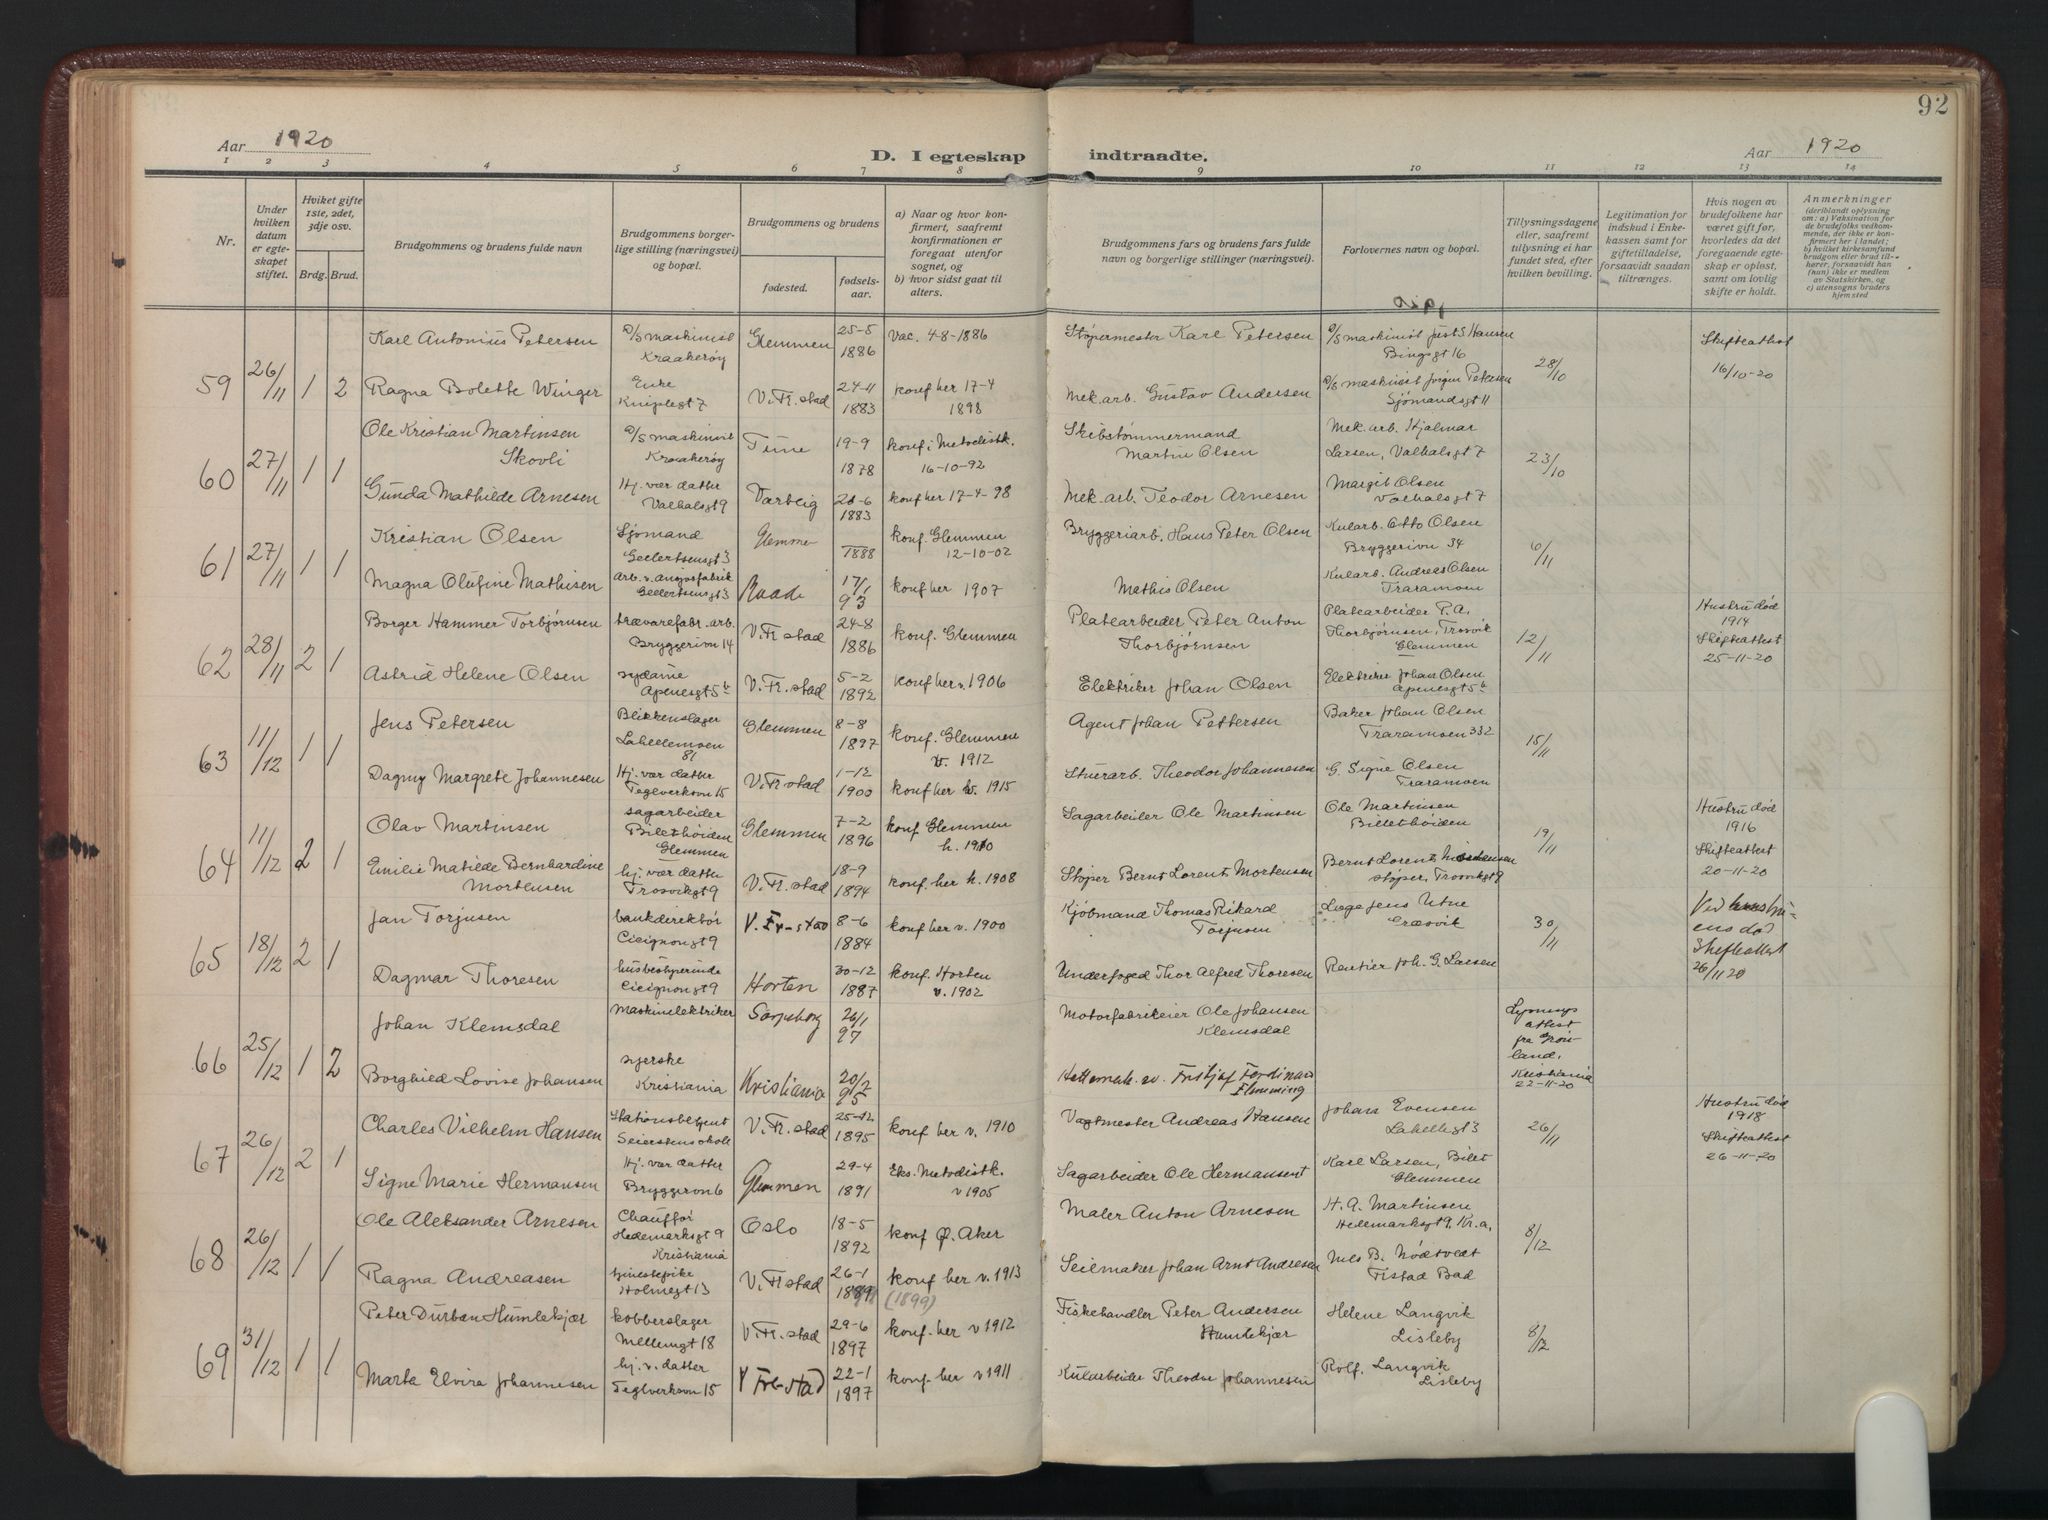 92
Aar 1920
D. I egteskap indtraadte.
Aar 1920
1 2 3 4 5 6 7 8 9 10 11 12 13 14
Nr.
Under hvilken datum er egte-skapet stiftet.
Hviket gifte 1ste, 2det, 3dje osv.
Brdg. Brud.
Brudgommens og brudens fulde navn
Brudgommens borger-lige stilling (næringsvei) og bopæl.
Brudgommens og brudens
fødested.
fødsels-aar.
a) Naar og hvor kon-firmert, saafremt konfirmationen er foregaat utenfor sognet, og
b) hvor sidst gaat til alters.
Brudgommens fars og brudens fars fulde navn og borgerlige stillinger (næringsvei).
Forlovernes navn og bopæl.
Tillysningsdagene eller, saafremt tillysning ei har fundet sted, efter hvilken bevilling.
Legitimation for indskud i Enke-kassen samt for giftetilladelse, forsaavidt saadan tiltrænges.
Hvis nogen av brudefolkene har været gift før, hvorledes da det foregaaende egte-skap er opløst, samt om lovlig skifte er holdt.
Anmerkninger
(deriblandt oplysning om: a) Vaksination for de brudefolks vedkom-mende, der ikke er kon-firmert her i landet; b) hvilket kirkesamfund brudgom eller brud til-hører, forsaavidt han (hun) ikke er medlem av Statskirken, og c) utensogns bruders hjemsted
59 26/11 1 2
Karl Antonius Petersen D/S maskinist Kraakerøy Glemmen 25-5 1886 Vac. 4-8-1886 Støpermester Karl Petersen D/S maskinist Just S Hansen Bingsgt 16 28/10 Skifteattest 16/10-20
Ragna Bolette Winger Enke Kniplesgt 7 V. Fr. stad 24-11 1883 konf her 17-4 1898 Mek. arb. Gustav Andersen D/S maskinist Jørgen Petersen Sjömandsgt 11
60 27/11 1 1
Ole Kristian Martinsen Skovli D/S maskinist Kraakerøy Tune 19-9 1878 konf i Metodistk. 16-10-92 Skibstømmermand Martin Olsen Mek. arb. Hjalmar Larsen, Valhalsgt 7 23/10
Gunda Mathilde Arnesen Hj. vær datter Valhalsgt 9 Varteig 1883 konf her 17-4-98 Mek. arb. Teodor Arnesen Margit Olsen Valhalsgt 7
61 27/11 1 1
Kristian Olsen Sjømand Geelertsensgt 3 Glemmen 1888 konf. Glemmen 12-10-02 Bryggeriarb. Hans Peter Olsen Kularb. Otto Olsen Bryggerivn 34 6/11
Magna Olufine Mathisen Geelertsensgt 3 Raade 17/1 93 konf her 1907 Mathis Olsen Kularb. Andreas Olsen Traramoen
62 28/11 2 1
Borger Hammer Torbjørnsen trævarefabr. arb. Bryggerivn 14 V. Fr stad 24-8 1886 konf. Glemmen Platearbeider Peter Anton Thorbjørnsen Platearbeider P.A. Thorbjørnsen, Trosvik Glemmen 12/11 Hustru død 1914 Skifteattest 25-11-20
Astrid Helene Olsen sydame Apenesgt 5b V. Fr. stad 5-2 1892 konf her v. 1906 Elektriker Johan Olsen Elektriker Johan Olsen Apenesgt 5b
63 11/12 1 1
Jens Petersen Blikkenslager Lahellemoen 81 Glemmen 8-8 1897 konf. Glemmen v. 1912 Agent Johan Pettersen Baker Johan Olsen Traramoen 332 15/11
Dagny Margrete Johannesen Hj. vær datter Teglverksvn 15 V. Fr stad 1-12 1900 konf her v. 1915 Stuerarb. Theodor Johannesen G. Signe Olsen Traramoen
64 11/12 2 1
Olav Martinsen sagarbeider Bilethøiden Glemmen Glemmen 7-2 1896 konf Glemmen h. 1910 Sagarbeider Ole Martinsen Ole Martinsen Billethøiden 19/11 Hustru død 1916 Skifteattest 20-11-20
Emilie Matilde Bernhardine Mortensen hj. vær datter Trosvikgt 9 V. Fr. stad 18-9 1894 konf. her h. 1908 Støper Bernt Lorents Mortensen Bernt Lorents Mortensen støper, Trosvikgt 9
65 18/12 2 1
Jan Torjusen bankdirektør Cicignonsgt 9 V. Fr-stad 8-6 1884 konf her v. 1900 Kjøbmand Thomas Rikard Torjusen Læge Jens Utne Græsvik 30/11 Ved hustru-ens død Skifteattest 26/11 20
Dagmar Thoresen husbestyrerinde Cicignonsgt 9 Horten 30-12 1887 konf. Horten v. 1902 Underfoged Thor Alfred Thoresen Rentier Joh. G. Larsen
66 25/12 1 2
Johan Klemsdal Maskinelektriker Sarpsborg 26/1 97 Motorfabrikeier Ole Johansen Klemsdal Lysningsattest fra Grønland, Kristiania 22-11-20
Borghild Lovise Johansen syerske Kristiania Kristiania 20/2 95 Fritjof Ferdinand Flemming
67 26/12 2 1
Charles Vilhelm Hansen Stationsbetjent V. Fr. stad 25-12 1895 konf her v. 1910 Vagtmester Andreas Hansen Johan Evensen Lahellegt 3 26/11 Hustru død 1918 Skifteattest 26-11-20
Signe Marie Hermansen Hj. vær datter Bryggerivn 6 Glemmen 29-4 1891 Eks. Metodistk. v 1905 Sagarbeider Ole Hermansen Karl Larsen, Bilet Glemmen
68 26/12 1 1
Ole Aleksander Arnesen Chauffør Hedemarksgt 9 Kristiania Oslo 18-5 1892 konf Ø. Aker Maler Anton Arnesen H. A. Martinsen Hedemarksgt 9, Kr.a. 8/12
Ragna Andreasen tjenestepike Holmegt 13 V. Fr stad 26-1 1898 konf her v. 1913 (1899) Seilmaker Johan Arnt Andresen Nils B. Nödtvedt Fr stad Bad
69 31/12 1 1
Peter Durban Humlekjær kobberslager Mellemgt 18 V. Fr. stad 29-6 1897 konf. her v 1912 Fiskehandler Peter Andersen Humlekjær Helene Langvik Lisleby 8/12
Marta Elvira Johannesen hj. v. datter Teglverksvn 15 V Fr-stad 22-1 1897 konf her v 1911 Kularbeider Theodor Johannesen Rolf. Langvik Lisleby